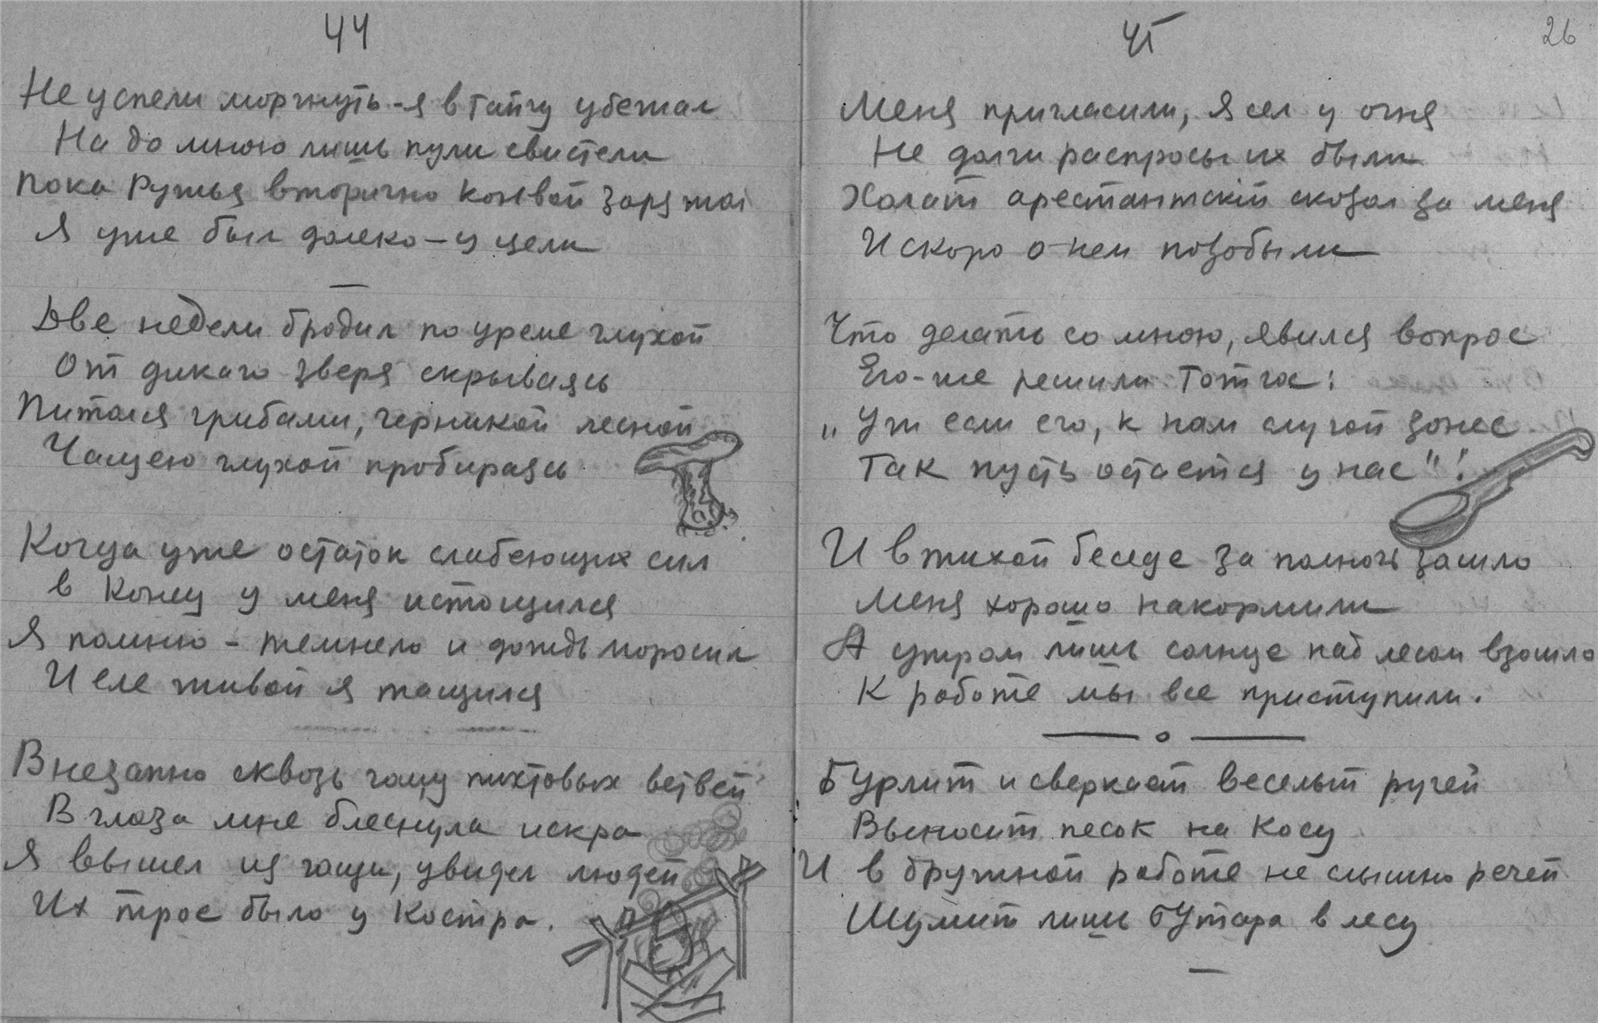 44
Не успели моргнуть - я в тайгу убежал
На до мною лишь пули свистели
Пока ружья вторично конвой заряжал
Я уже был далеко - у цели
Две недели бродил по уреме глухой
От дикаго зверя скрываясь
Питался грибами, черникой лесной
Чащею глухой пробираясь
Когда уже остаток слабеющих сил
в конец у меня истощился
Я помню - темнело и дождь моросил
И еле живой я тащился
Внезапно сквозь чащу пихтовых ветвей
В глаза мне блеснула искра
Я вышел из чащи, увидел людей
Их трое было у костра.
45
26
Меня пригласили, я сел у огня
Не долги распросы их были
Халат арестантскій сказал за меня
И скоро о нем позабыли
Что делать со мною, явился вопрос
Его-же решили тотчас:
„Уж если его, к нам случай занес
Так пусть остается у нас"!
И в тихой беседе за полночь зашло
Меня хорошо накормили
А утром лишь солнце над лесом взошло
К работе мы все приступили.
Бурлит и сверкает веселый ручей
Выносит песок на косу
И в дружной работе не слышно речей
Шумит лишь бутара в лесу